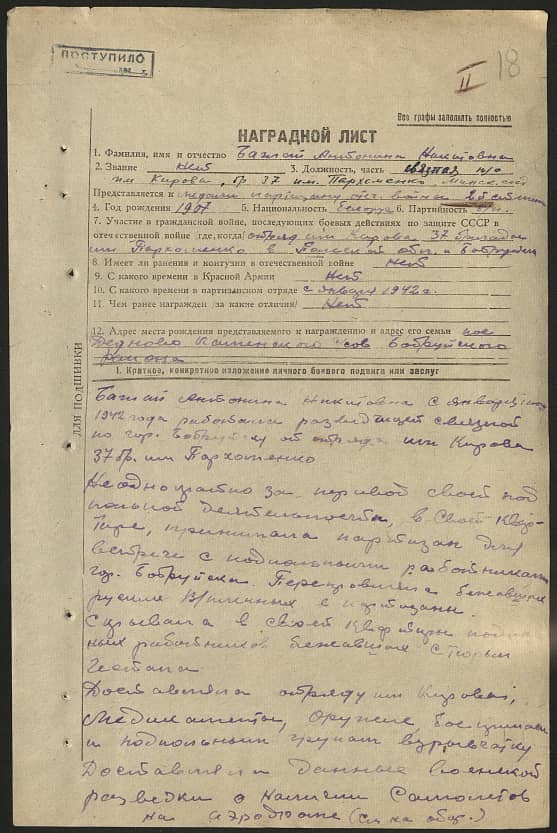 ПОСТУПИЛО
II 18
Все графы заполнять полностью
НАГРАДНОЙ ЛИСТ
1. Фамилия, имя и отчество Баглай Антонина Никитовна
2. Звание Нет 3. Должность, часть связная п/о
им Кирова, бр. 37 им. Пархоменко, Минской
Представляется к медали партизану отеч. войны 2й степени
4. Год рождения 1907 5. Национальность белорус 6. Партийность б/п
7. Участие в гражданской войне, последующих боевых действиях по защите СССР в
отечественной войне (где, когда) отряд им Кирова 37 бригады
им Пархоменко в обл. и Бобруйск
8. Имеет ли ранения и контузии в отечественной войне Нет
9. С какого времени в Красной Армии Нет
10. С какого времени в партизанском отряде с января 1942 г.
11. Чем ранее награжден /за какие отличия/ Нет
12. Адрес места рождения представляемого к награждению и адрес его семьи пос
Каменского с/сов Бобруйского
района
1. Краткое, конкретное изложение личного боевого подвига или заслуг
ДЛЯ ПОДШИВКИ
Баглай Антонина Никитовна с января
1942 года работала разведчицей связной
по гор. Бобруйску от отряда им Кирова
37 бр. им Пархоменко
Неоднократно за период своей под
польной деятельности, в своей квар-
тире, принимала партизан для
встречи с подпольными работниками
гор. Бобруйска. Переправляла бежавших
русских в/пленных в партизаны.
Скрывала в своей квартире подполь
ных работников бежавших с тюрьм
гестапо
Доставляла отряду им Кирова,
медикаменты, оружие боеприпасы
и подпольным группам взрывчатку
Доставляла данные военской
разведки о наличии самолетов
на аэродроме (см на обор.)